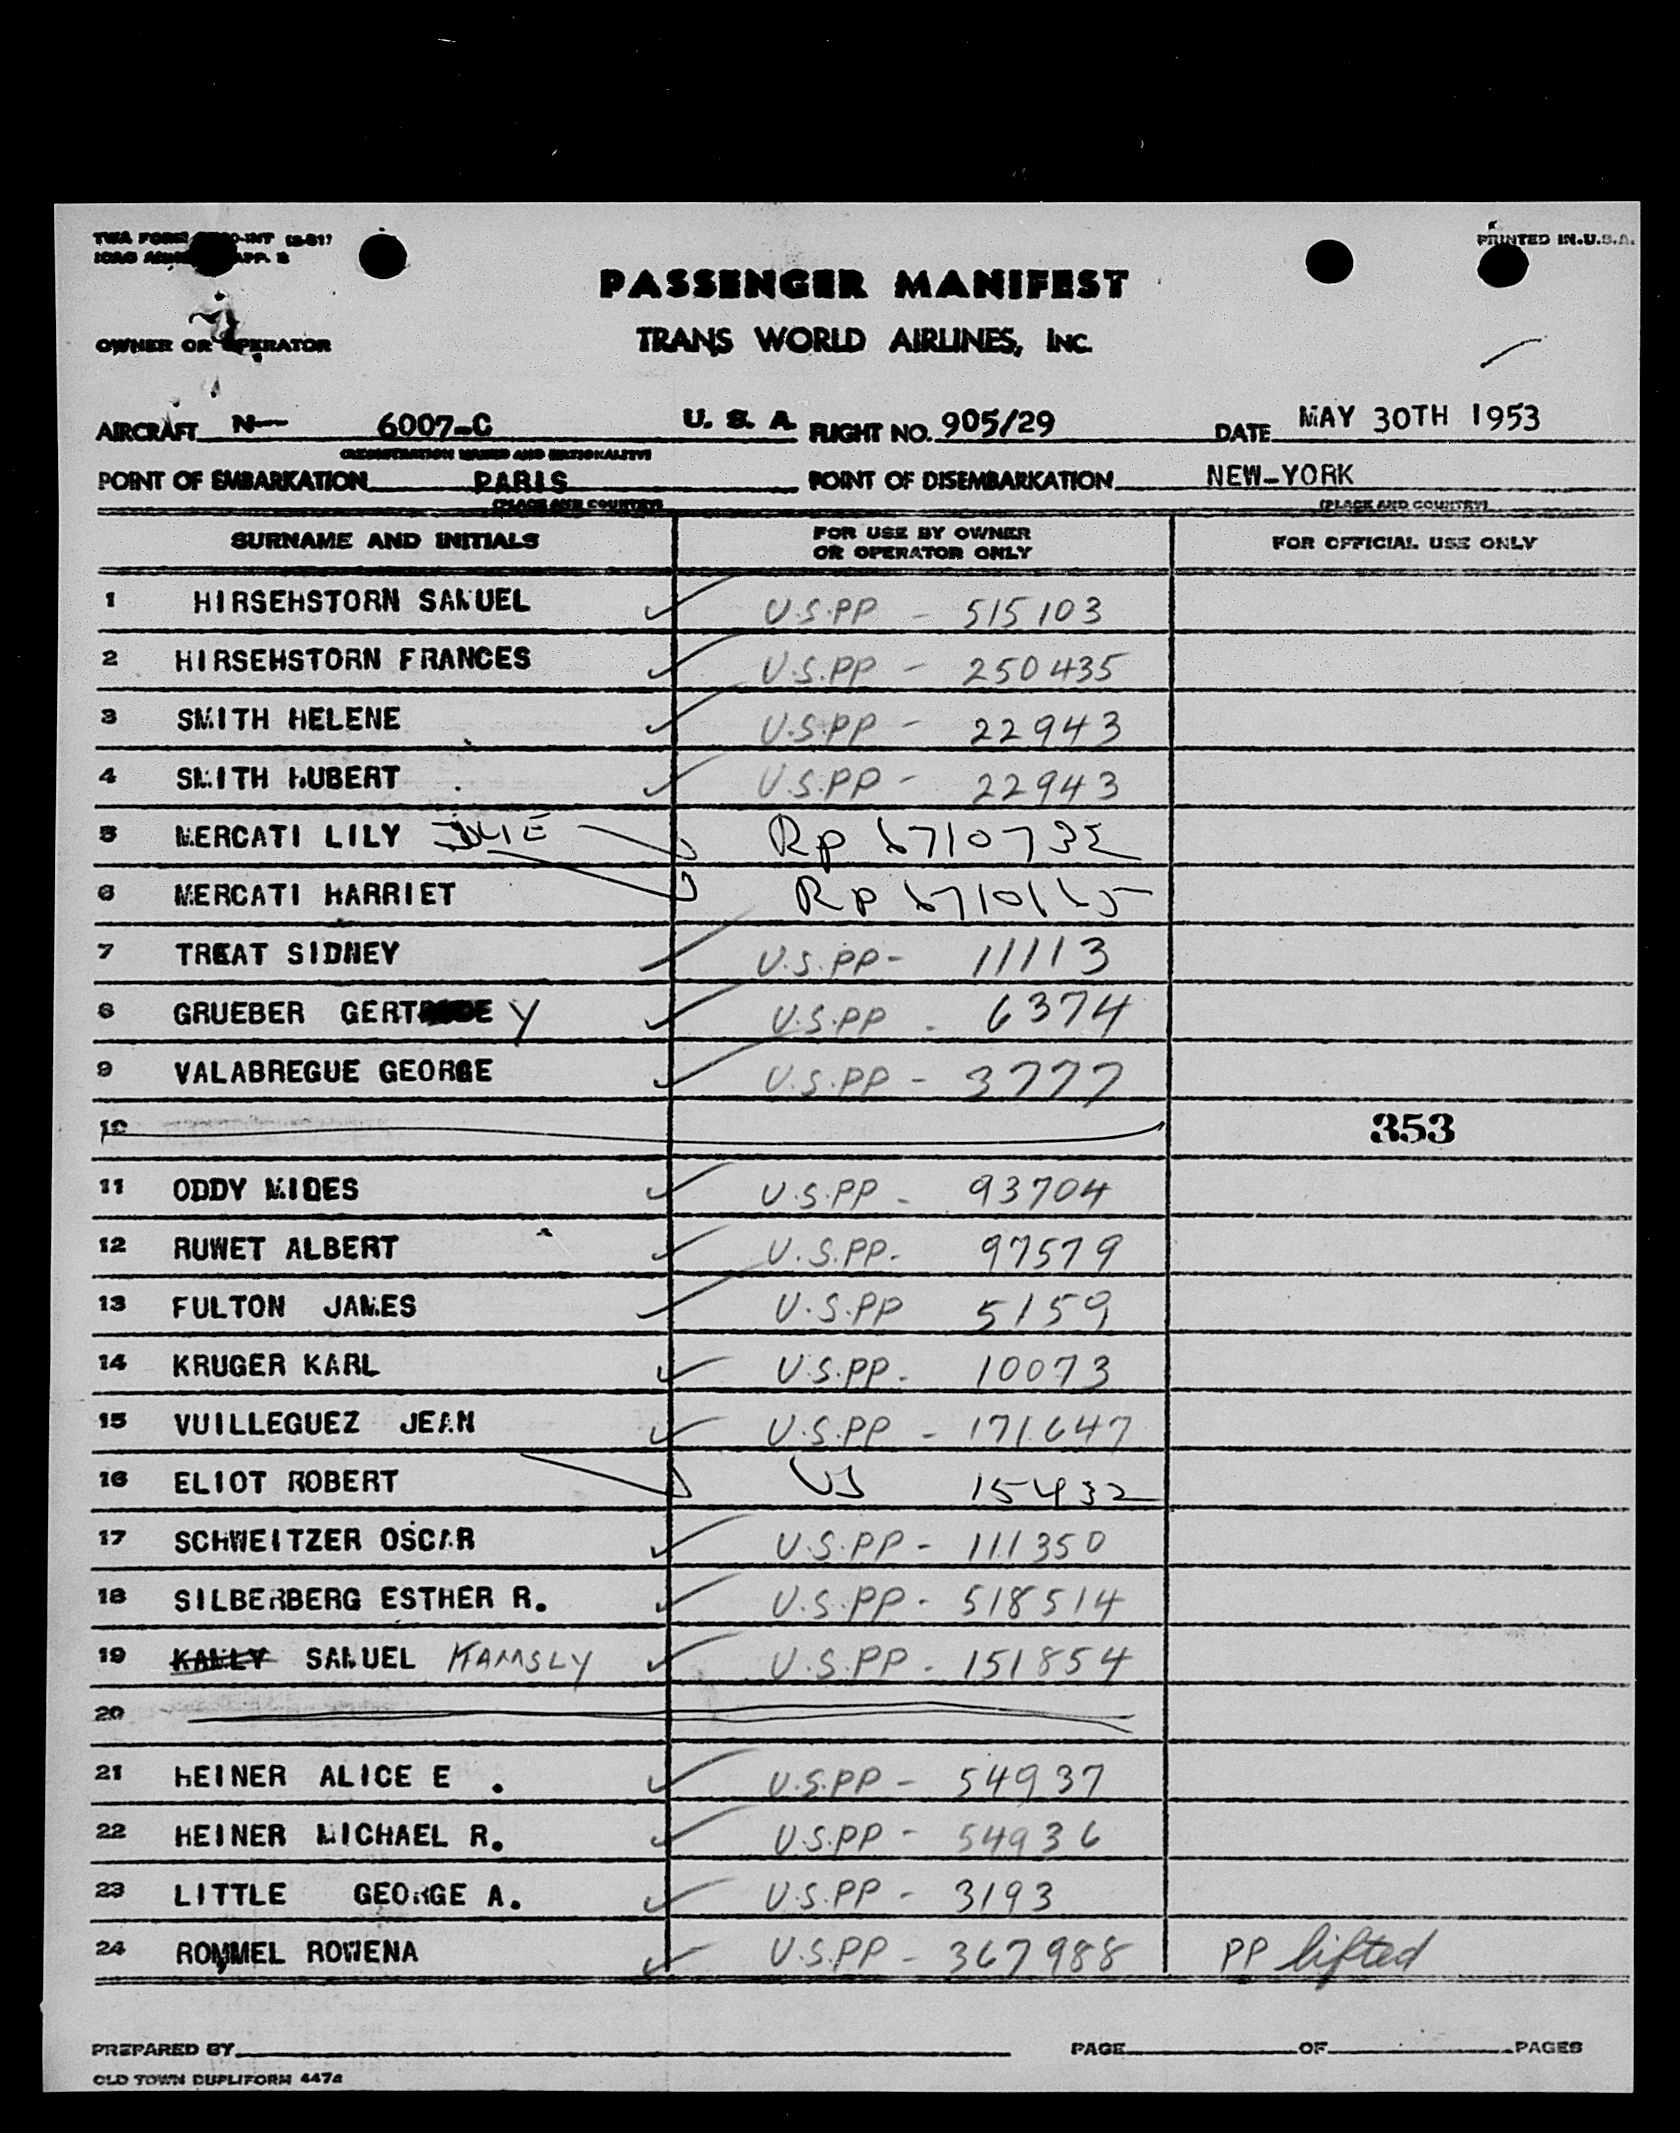 PRINTED IN U.S.A.
PASSENGER MANIFEST
TRANS WORLD AIRLINES, INC.
OWNER OR OPERATOR
AIRCRAFT N— 6007-C U. S. A. FLIGHT NO. 905/29 DATE MAY 30TH 1953
(REGISTRATION MARKS AND NATIONALITY)
POINT OF EMBARKATION PARIS POINT OF DISEMBARKATION NEW-YORK
(PLACE AND COUNTRY) (PLACE AND COUNTRY)
SURNAME AND INITIALS FOR USE BY OWNER OR OPERATOR ONLY FOR OFFICIAL USE ONLY
1 HIRSEHSTORN SAMUEL U.S.PP - 515103
2 HIRSEHSTORN FRANCES U.S.PP - 250435
3 SMITH HELENE U.S.PP - 22943
4 SMITH HUBERT U.S.PP - 22943
5 MERCATI LILY Rp
6 MERCATI HARRIET Rp
7 TREAT SIDNEY U.S.PP - 11113
8 GRUEBER GERTY U.S.PP - 6374
9 VALABREGUE GEORGE U.S.PP - 3777
10 353
11 ODDY MIDES U.S.PP - 93704
12 RUWET ALBERT U.S.PP. 97579
13 FULTON JAMES U.S.PP 5159
14 KRUGER KARL U.S.PP. 10073
15 VUILLEGUEZ JEAN U.S.PP - 171647
16 ELIOT ROBERT US 15432
17 SCHWEITZER OSCAR U.S.PP - 111350
18 SILBERBERG ESTHER R. U.S.PP - 518514
19 KAMLY SAMUEL KAMSLY U.S.PP - 151854
20
21 HEINER ALICE E . U.S.PP - 54937
22 HEINER MICHAEL R. U.S.PP - 54936
23 LITTLE GEORGE A. U.S.PP - 3193
24 ROMMEL ROWENA U.S.PP - 367988 PP lifted
PREPARED BY PAGE OF PAGES
OLD TOWN DUPLIFORM 4474